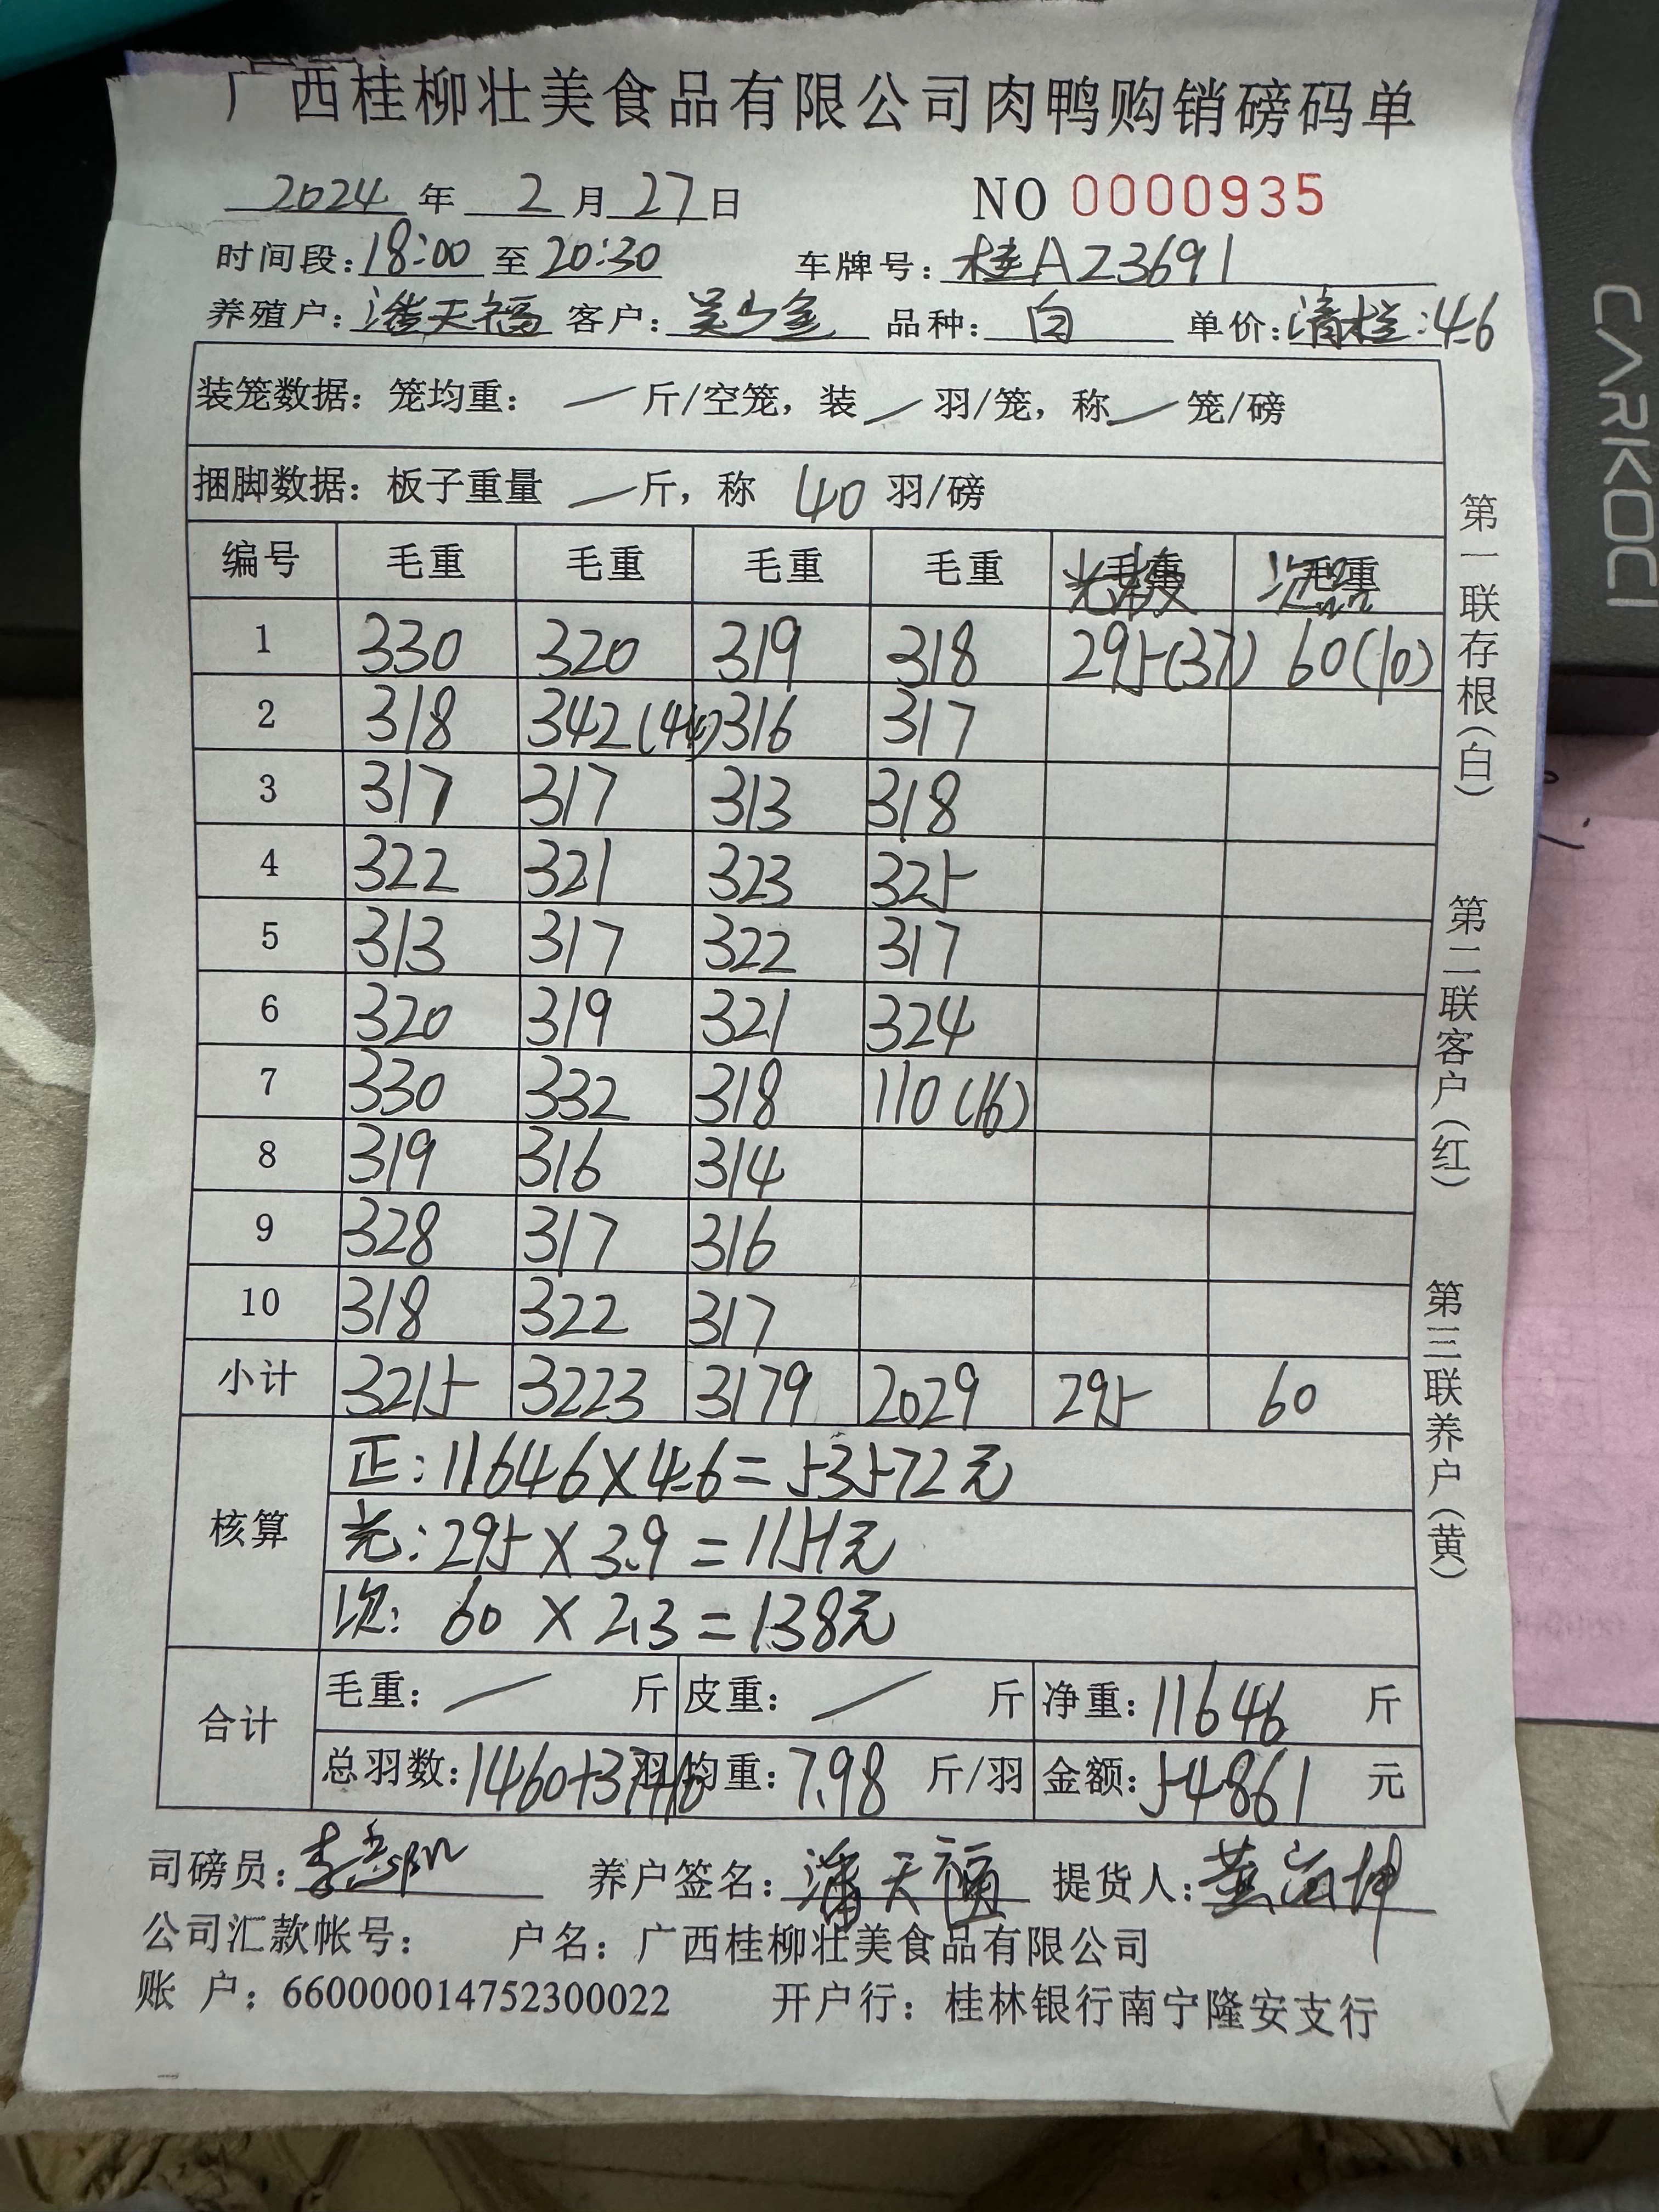 广西桂柳壮美食品有限公司肉鸭购销磅码单
2024年 2月27日 NO 0000935
时间段:18:00至20:30 车牌号:桂AZ3691
养殖户:潘天福 客户: 品种:白 单价:清栏:4.6
装笼数据:笼均重: — 斤/空笼,装 — 羽/笼,称 — 笼/磅
捆脚数据:板子重量 — 斤,称 40 羽/磅
编号 毛重 毛重 毛重 毛重 毛重 毛重
1 330 320 319 318 295(37) 60(10)
2 318 342(44) 316 317
3 317 317 313 318
4 322 321 323 325
5 313 317 322 317
6 320 319 321 324
7 330 332 318 110(16)
8 319 316 314
9 328 317 316
10 318 322 317
小计 3215 3223 3179 2029 295 60
核算
正:11646×4.6=53572元
光:295×3.9=1151元
次:60×2.3=138元
合计
毛重: — 斤 皮重: — 斤 净重:11646 斤
总羽数:1460+37+10羽 均重:7.98 斤/羽 金额:54861 元
司磅员: 养户签名:潘天福 提货人:
公司汇款帐号: 户名:广西桂柳壮美食品有限公司
账 户:660000014752300022 开户行:桂林银行南宁隆安支行
第一联存根(白) 第二联客户(红) 第三联养户(黄)
CARKOCI